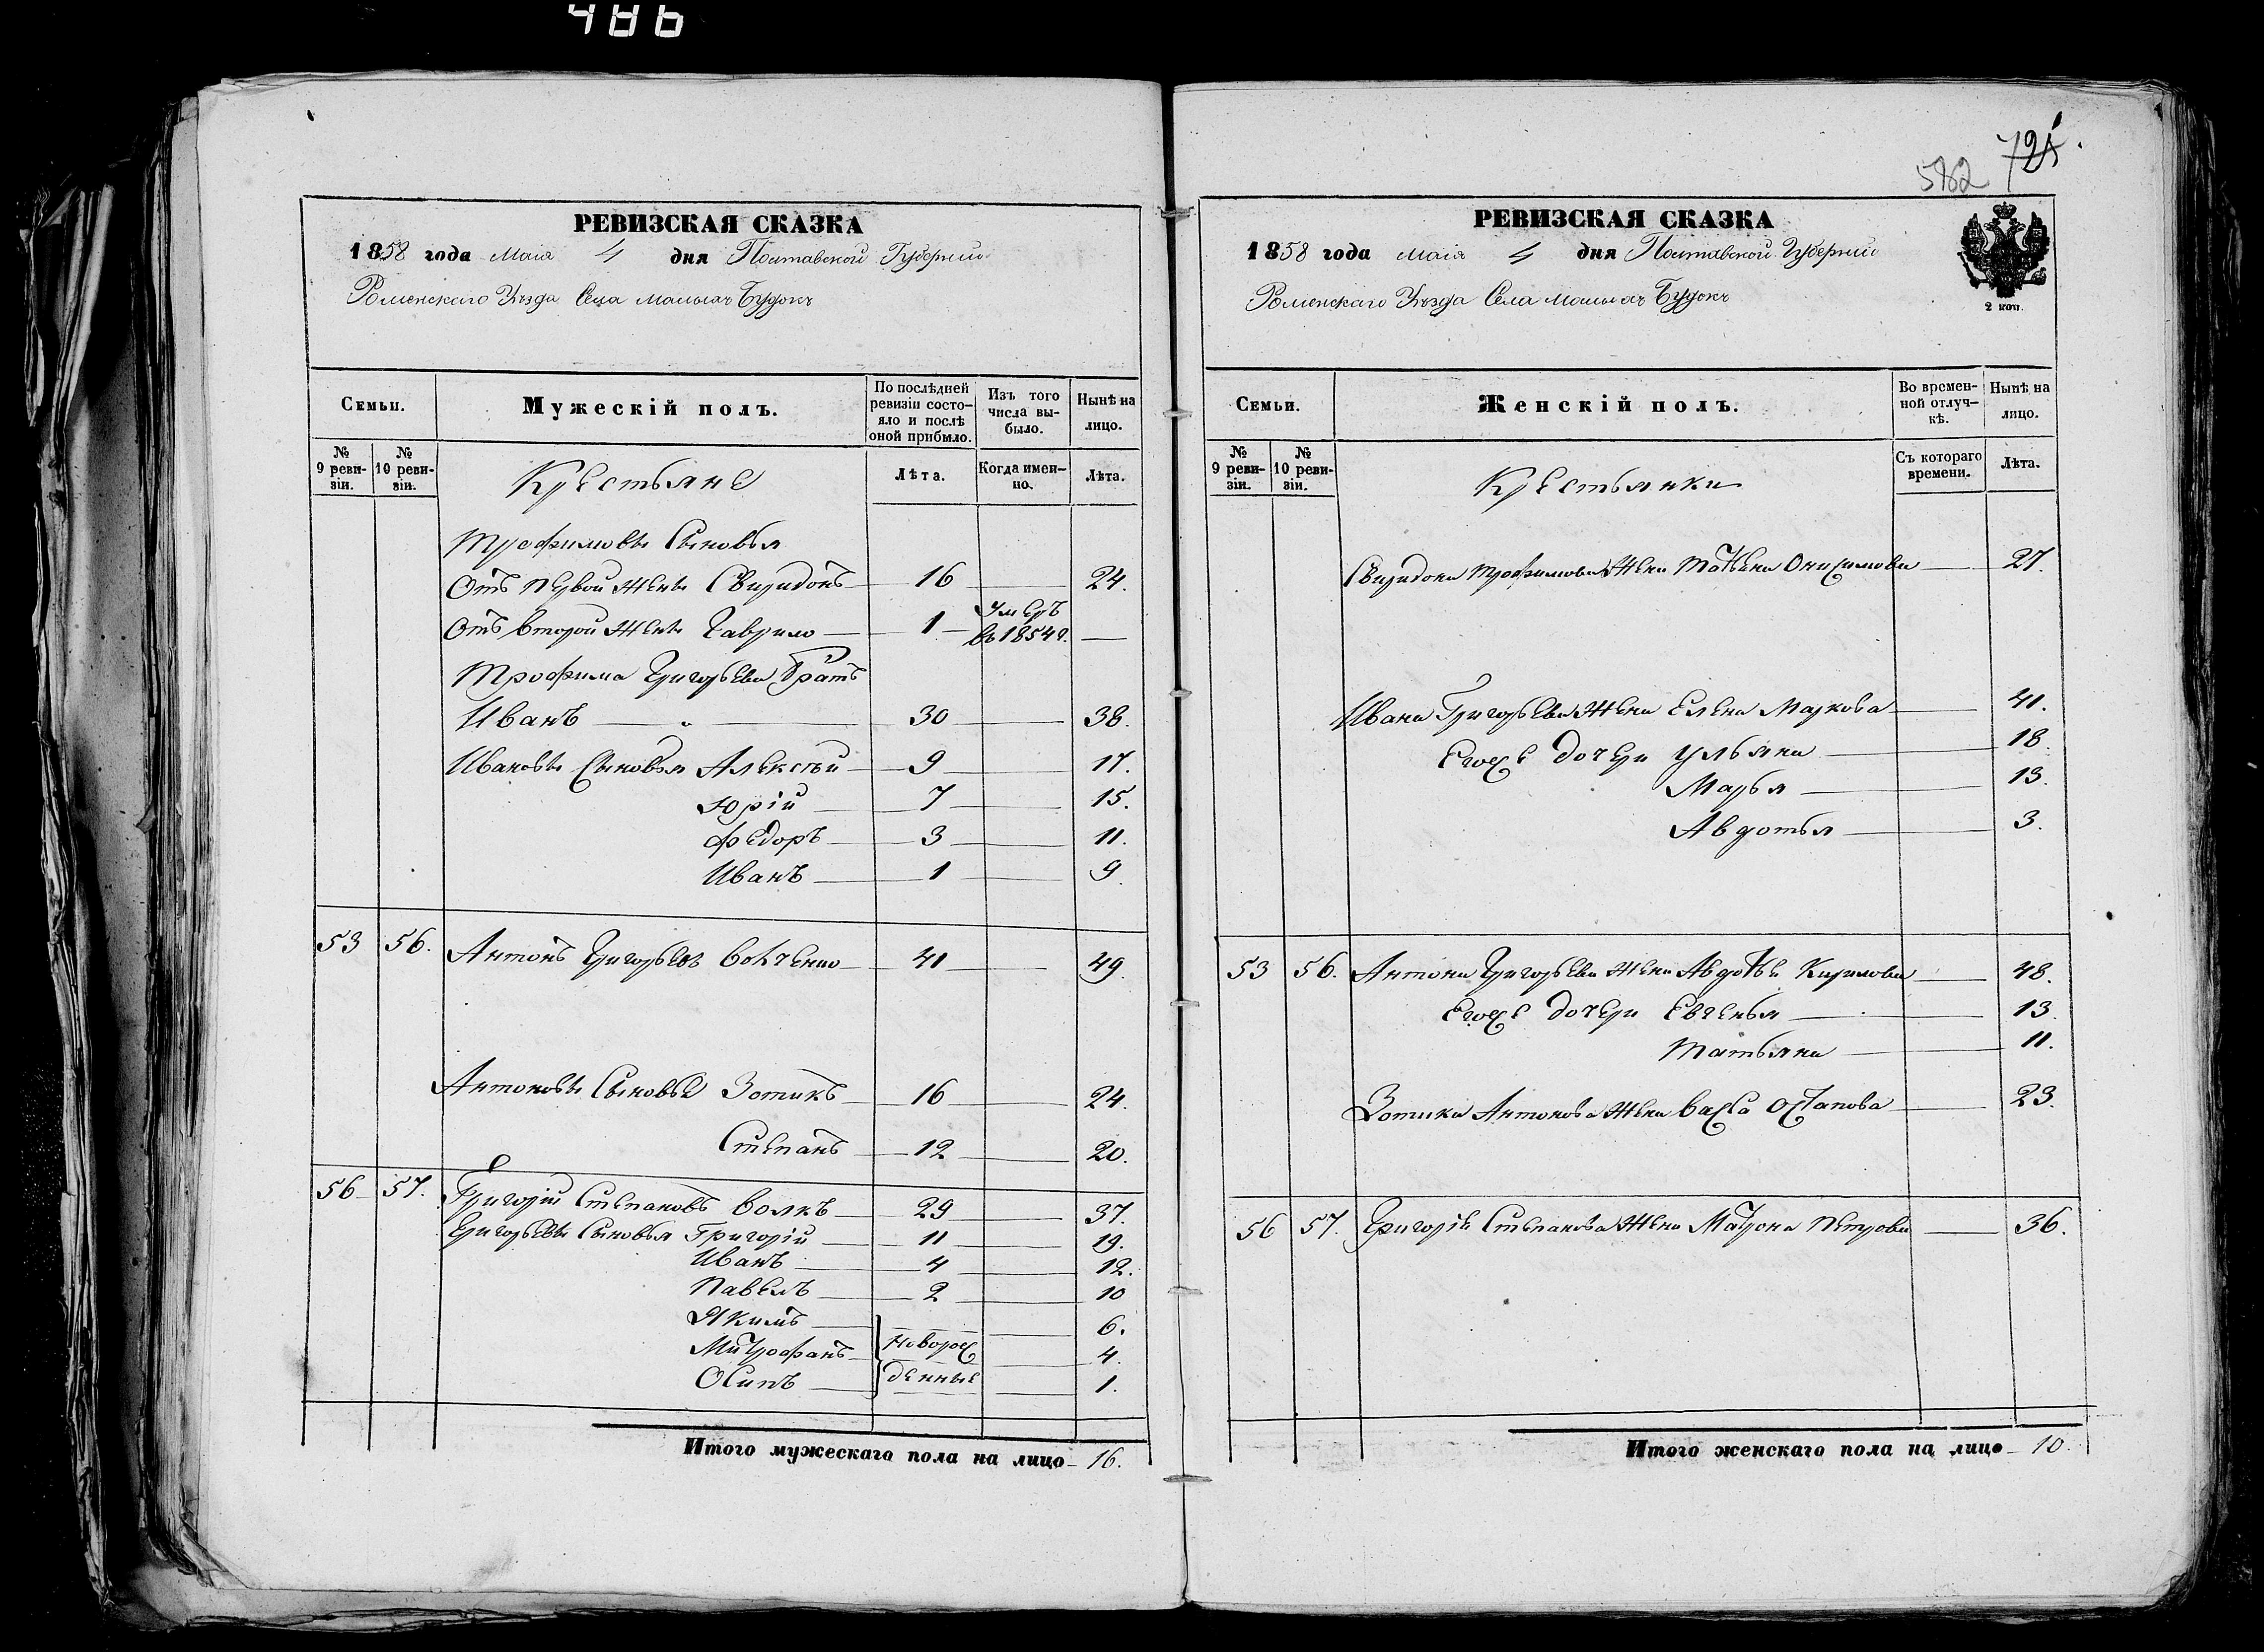 486
РЕВИЗСКАЯ СКАЗКА
1858 года Маія 4 дня Полтавской Губерніи
Роменскаго Уѣзда Села Малыхъ Будокъ
Семьи.
Мужескій полъ.
По послѣдней ревизіи состояло и послѣ оной прибыло.
Изъ того числа выбыло.
Нынѣ на лицо.
№ 9 ревизіи.
№ 10 ревизіи.
Крестьяне
Лѣта.
Когда именно.
Лѣта.
Трофимовы Сыновья
Отъ первой жены Свиридонъ 16 24.
Отъ второй жены Гаврило 1 Умеръ въ 1854 г.
Трофима Григорьева Братъ
Иванъ 30 38.
Ивановы Сыновья Алексѣй 9 17.
Юрій 7 15.
Федоръ 3 11.
Иванъ 1 9.
53 56. Антонъ Григорьевъ 41 49.
Антоновы Сыновья Зотикъ 16 24.
Степанъ 12 20.
56 57. Григорій Степановъ Волкъ 29 37.
Григорьевы Сыновья Григорій 11 19.
Иванъ 4 12.
Павелъ 2 10
Якимъ 6.
Митрофанъ новорож 4.
Осипъ денные 1.
Итого мужескаго пола на лицо 16.
582 721.
РЕВИЗСКАЯ СКАЗКА
1858 года маія 4 дня Полтавской Губерніи
Роменскаго Уѣзда Села Малыхъ Будокъ
2 коп.
Семьи.
Женскій полъ.
Во временной отлучкѣ.
Нынѣ на лицо.
№ 9 ревизіи.
№ 10 ревизіи.
Крестьянки
Съ котораго времени.
Лѣта.
Свиридона Трофимова Жена Татьяна Онисимова 27.
Ивана Григорьева Жена Елена Маркова 41.
Егоже дочери Ульяна 18.
Марья 13.
Авдотья 3.
53 56. Антона Григорьева Жена Авдотья Кирилова 48.
Егоже дочери Евгенья 13.
Татьяна 11.
Зотика Антонова Жена Васса Остапова 23.
56 57. Григорія Степанова Жена Матрона Петрова 36.
Итого женскаго пола на лицо 10.